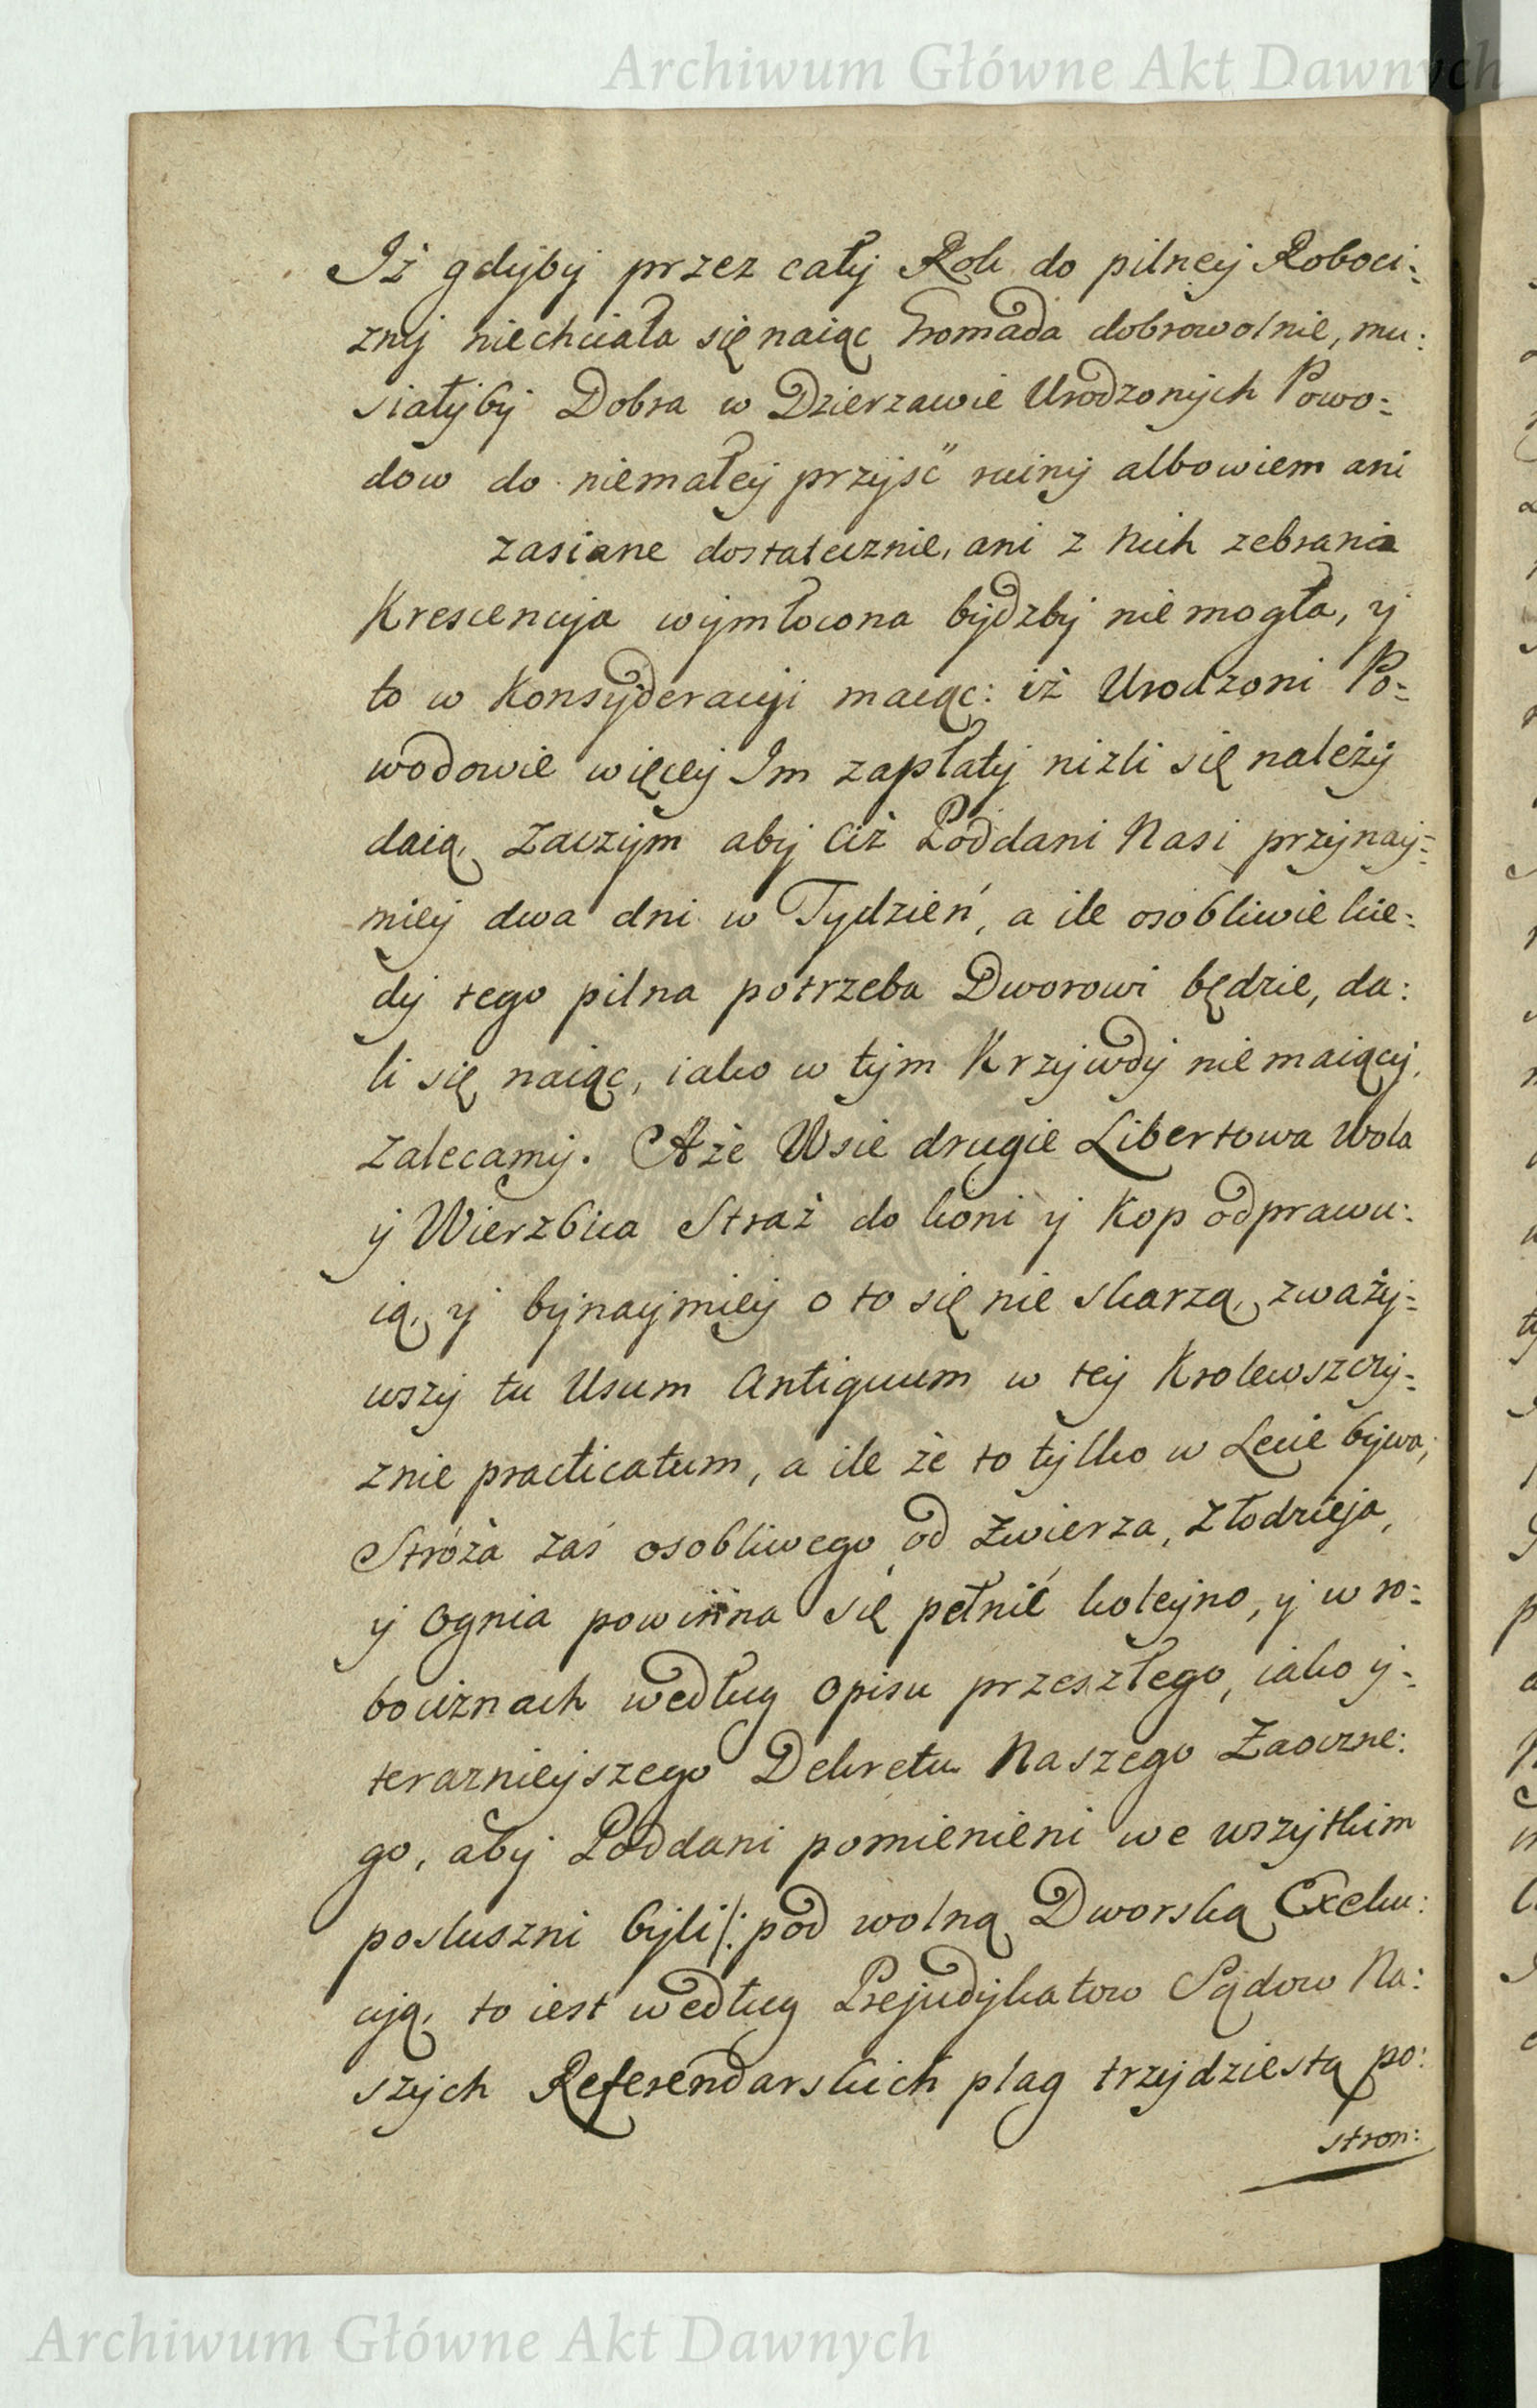 Archiwum Główne Akt Dawnych
Iż gdyby przez cały Rok do pilney Roboci:
zny niechciała się naiąc Gromada dobrowolnie, mu:
siałyby Dobra w Dzierzawie Urodzonych Powo:
dow do niemałey przyjść ruiny albowiem ani
zasiane dostatecznie, ani z nich zebrania
Krescencya wymłocona bydzby niemogła, y
to w Konsyderacyi maiąc: iż Urodzoni Po:
wodowie więcey Im zapłaty nizli się należy
daią, Zaczym aby Ciż Poddani Nasi przynay:
miey dwa dni w Tydzień, a ile osobliwie kie:
dy tego pilna potrzeba Dworowi będzie, da:
li się naiąc, iako w tym Krzywdy niemaiący,
zalecamy. A że Wsie drugie Libertowa Wola
y Wierzbica Straż do koni y Kop odprawu:
ią, y bynaymiey o to się nie skarzą, zważy:
wszy tu Usum Antiquum w tey Krolewszczy:
znie practicatum, a ile że to tylko w Lecie bywa,
Stróża zaś osobliwego od Zwierza, Złodzieja,
y Ognia powinna się pełnić koleyno, y w ro:
bociznach według Opisu przeszłego, iako y:
terazniejszego Dekretu Naszego Zaoczne:
go, aby Poddani pomienieni we wszytkim
posłuszni byli /: pod wolną Dworską Exeku:
cyą, to iest według Prejudykatow Sądow Na:
szych Referendarskich plag trzydziestą po:
stron:
Archiwum Główne Akt Dawnych